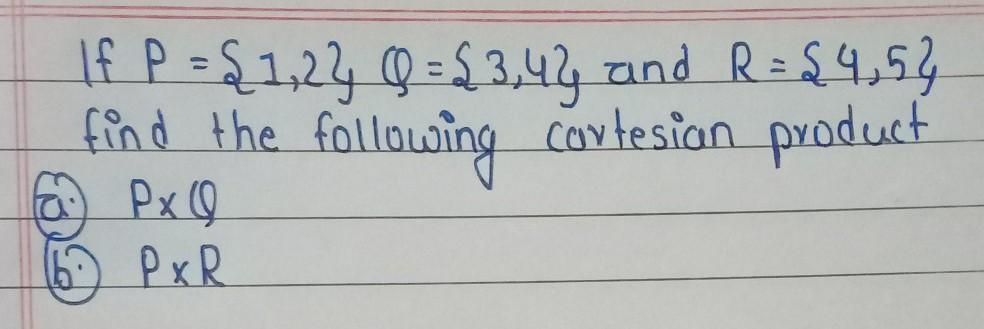 If P = {1,2} Q = {3,4} and R = {4,5}
find the following cartesian product
a. P×Q
b. P×R